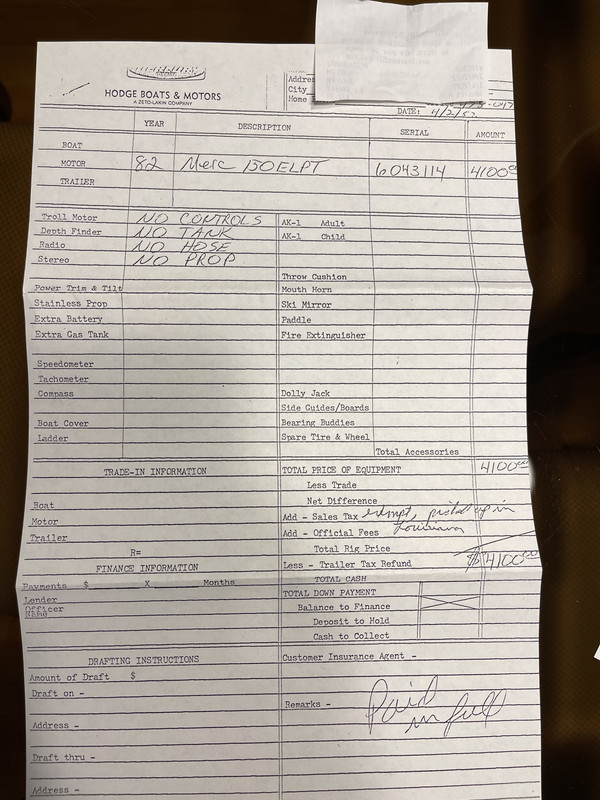 HODGE BOATS & MOTORS
A ZETO-LAKIN COMPANY
Addres
City
Home
DATE: 4/2/82
YEAR DESCRIPTION SERIAL AMOUNT
BOAT
MOTOR 82 Merc 150ELPT 6043114 4100⁰⁰
TRAILER
Troll Motor NO CONTROLS AK-1 Adult
Depth Finder NO TANK AK-1 Child
Radio NO HOSE
Stereo NO PROP
Throw Cushion
Power Trim & Tilt Mouth Horn
Stainless Prop Ski Mirror
Extra Battery Paddle
Extra Gas Tank Fire Extinguisher
Speedometer
Tachometer
Compass Dolly Jack
Side Guides/Boards
Boat Cover Bearing Buddies
Ladder Spare Tire & Wheel
Total Accessories
TRADE-IN INFORMATION TOTAL PRICE OF EQUIPMENT 4100⁰⁰
Less Trade
Boat Net Difference
Motor Add - Sales Tax exempt, picked up in
Trailer Add - Official Fees Louisiana
R= Total Rig Price
FINANCE INFORMATION Less - Trailer Tax Refund $4100⁰⁰
Payments $ X Months TOTAL CASH
Lender TOTAL DOWN PAYMENT
Officer Name Balance to Finance
Deposit to Hold
Cash to Collect
DRAFTING INSTRUCTIONS Customer Insurance Agent -
Amount of Draft $
Draft on - Remarks - Paid in full
Address -
Draft thru -
Address -